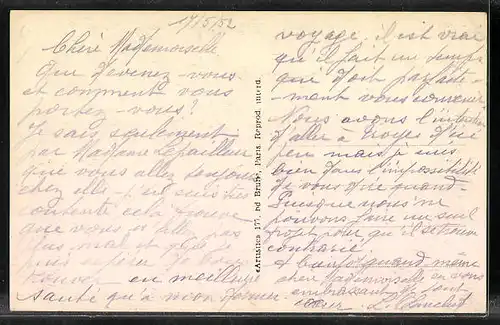 17/5/52
Chère Mademoiselle
Que devenez-vous
et comment vous
portez-vous?
Je sais seulement
par Madame
que vous allez toujours
chez elle j'en suis très
contente cela prouve
que vous n'allez pas
plus mal et que je
puis
en meilleure
santé qu'à mon dernier
«Artistica 177, rd Brune, Paris. Reprod. interd.
voyage, il est vrai
qu'il fait un temps
que doit parfaite-
ment vous convenir
Nous avons l'intention
d'aller à Troyes d'ici
peu mais je suis
bien dans l'impossibilité
de vous dire quand-
Puisque nous ne
pouvons faire un seul
projet pour qu'il se trouve
contrarié.
quand même
chère Mademoiselle en vous
embrassant de tout
cœur